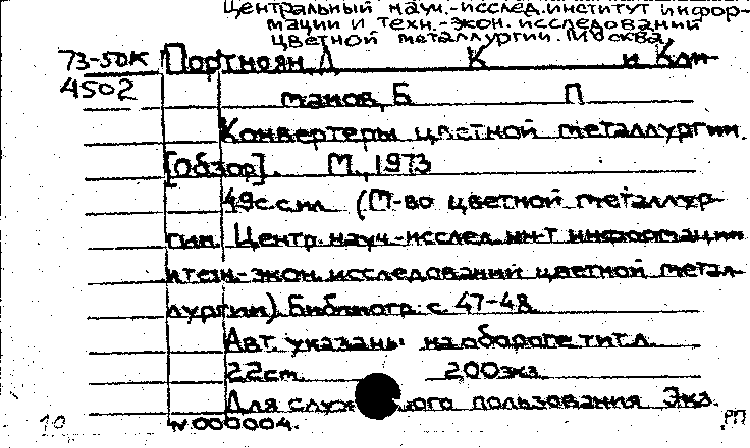 Центральный науч.-исслед. институт инфор-
мации и техн.-экон. исследований
цветной металлургии. Москва
73-50К Портноян Л К и Кли-
4502 манов, Б П
Конвертеры цветной металлургии.
[Обзор]. М., 1973
49с.с.ил. (М-во цветной металлур-
гии. Центр. науч.-исслед. ин-т информации
и техн.-экон. исследований цветной метал-
лургии). Библиогр. с. 47-48
Авт. указаны на обороте тит.л.
22см. 200экз.
Для служ ного пользования Экз.
№000004.
10 РП